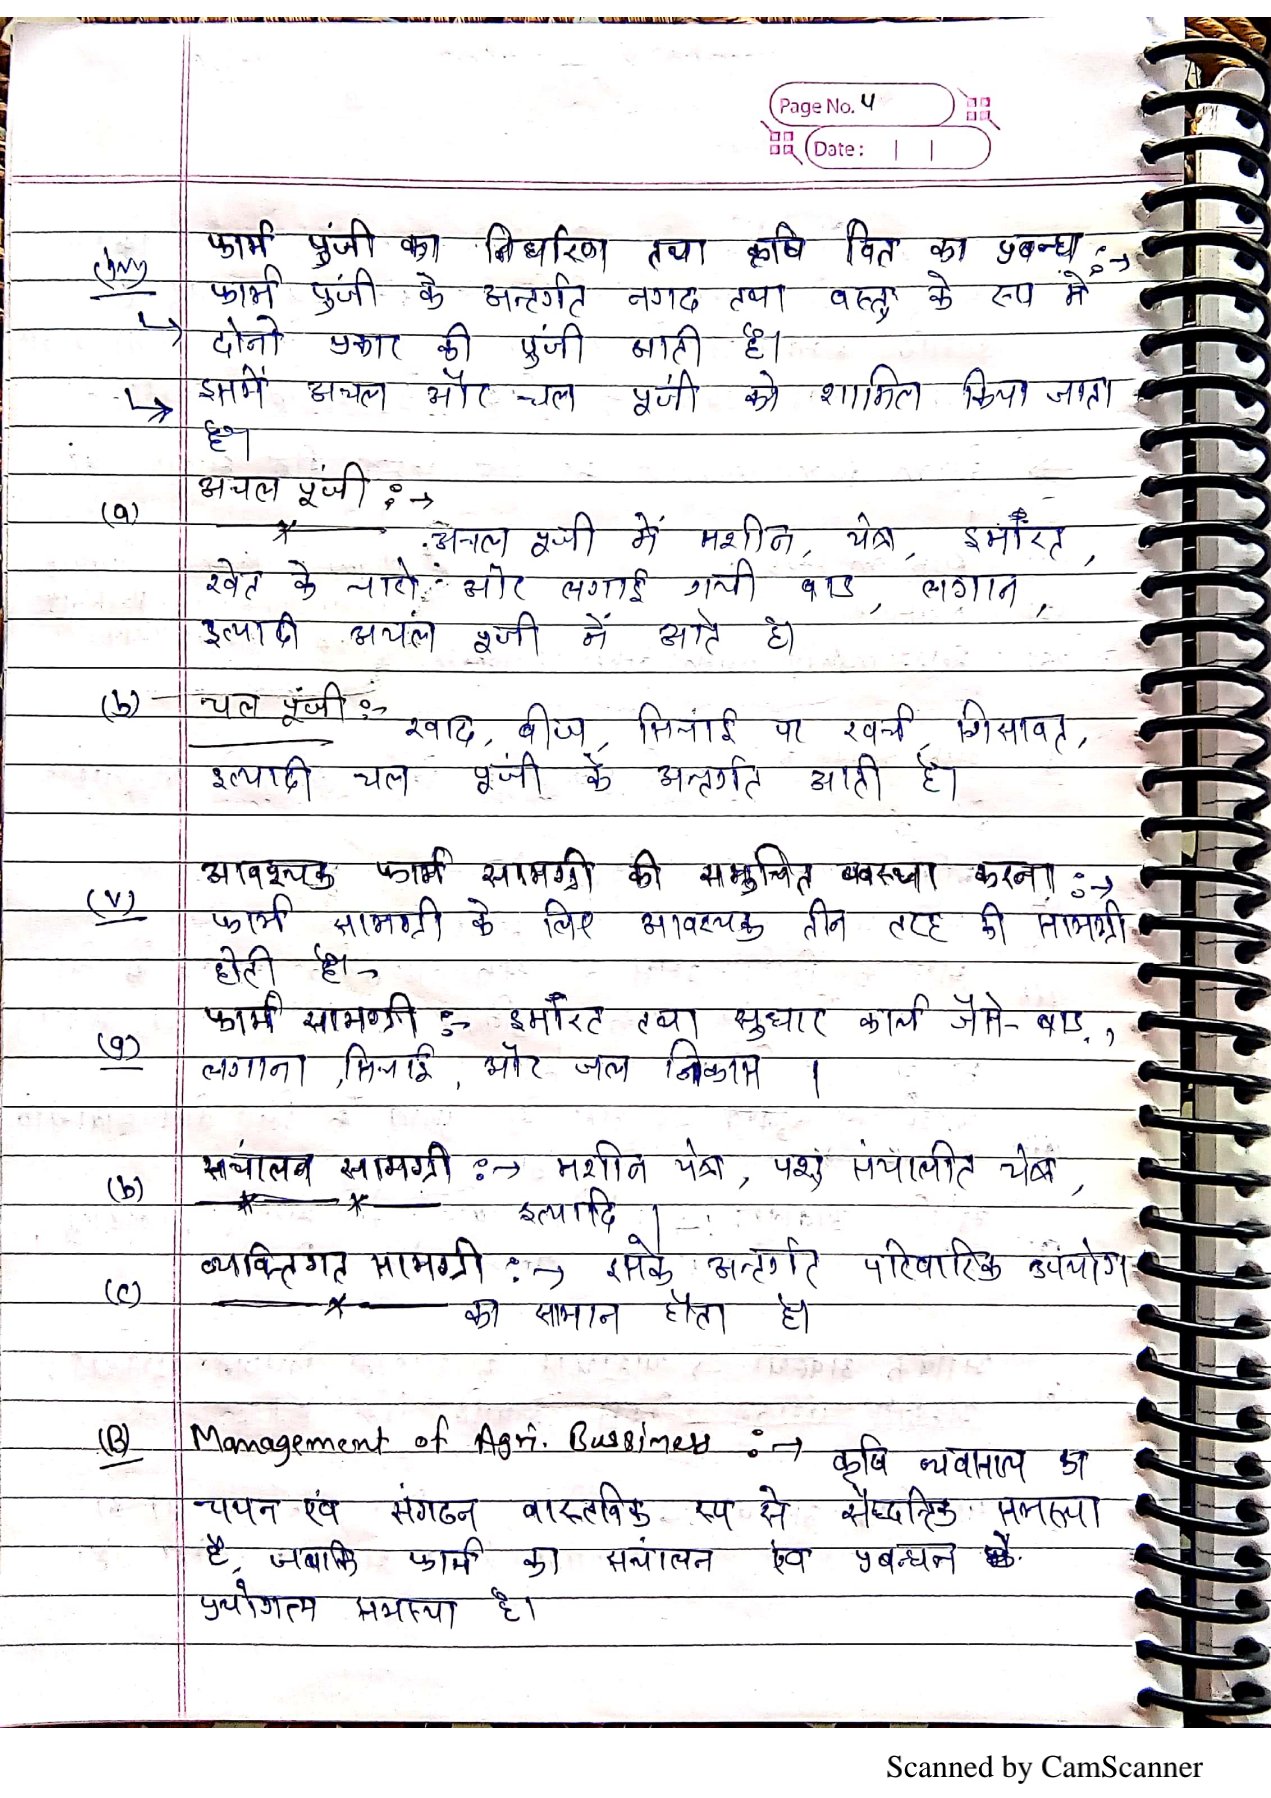 Page No. 4
Date :
(iv) फार्म पुंजी का निर्धारण तथा कृषि वित का प्रबन्ध :→
फार्म पुंजी के अन्तर्गत नगद तथा वस्तु के रूप में
↳ दोनो प्रकार की पुंजी आती है।
↳ इसमें अचल और चल पूंजी को शामिल किया जाता
है।
(a) अचल पूंजी :→
अचल पूजी में मशीन, यंत्र, इमारत,
खेत के चारो ओर लगाई गयी बाड, लगान,
इत्यादी अचल पूजी में आते है।
(b) चल पूंजी :-
खाद, बीज, सिचाई पर खर्च, घिसावट,
इत्यादी चल पूंजी के अन्तर्गत आती है।
(v) आवश्यक फार्म सामग्री की समुचित व्यवस्था करना :→
फार्म सामग्री के लिए आवश्यक तीन तरह की सामग्री
होती है।→
(a) फार्म सामग्री :- इमारत तथा सुधार कार्य जैसे- बाड,
लगाना, सिचाई, और जल निकास ।
(b) संचालन सामग्री :→ मशीन यंत्र, पशु संचालीत यंत्र,
इत्यादि ।
(c) व्यक्तिगत सामग्री :→ इसके अन्तर्गत परिवारिक उपयोग
का सामान होता है।
(B) Management of Agri. Bussiness :→ कृषि व्यवसाय का
चयन एंव संगठन वास्तविक रूप से सैध्दांतिक समस्या
है, जबकि फार्म का सचालन एंव प्रबन्धन
प्रयोगात्म समस्या है।
Scanned by CamScanner